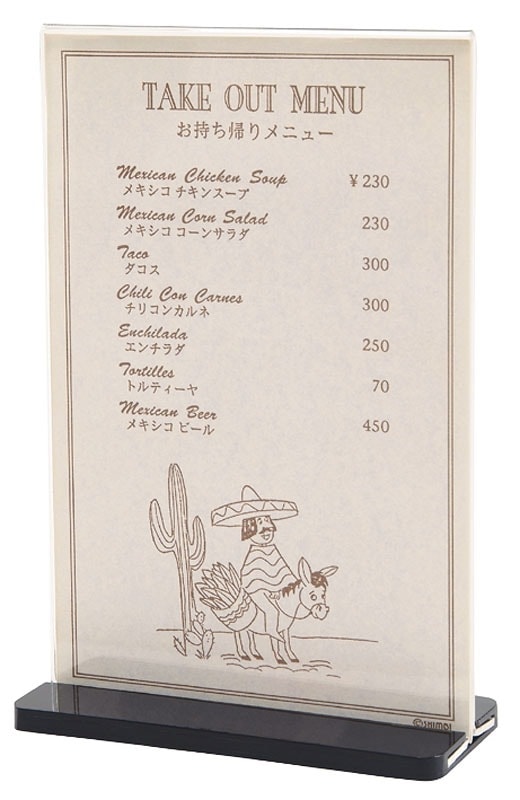 TAKE OUT MENU
お持ち帰りメニュー
Mexican Chicken Soup ¥230
メキシコ チキンスープ
Mexican Corn Salad 230
メキシコ コーンサラダ
Taco 300
タコス
Chili Con Carnes 300
チリコンカルネ
Enchilada 250
エンチラダ
Tortilles 70
トルティーヤ
Mexican Beer 450
メキシコ ビール
©SHIMOI